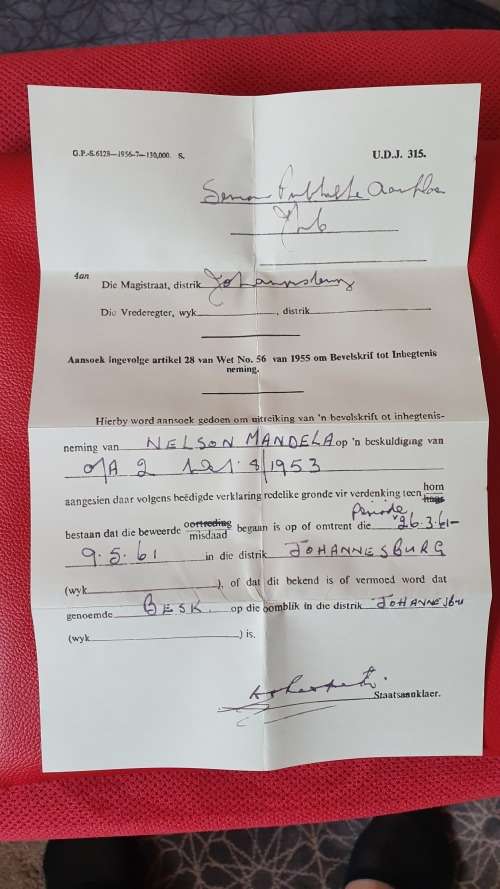 G.P.-S.6128—1956-7—150,000. S.
U.D.J. 315.
Senior Publieke Aanklaer
Jhb
Aan
Die Magistraat, distrik Johannesburg
Die Vrederegter, wyk , distrik
Aansoek ingevolge artikel 28 van Wet No. 56 van 1955 om Bevelskrif tot Inhegtenis
neming.
Hierby word aansoek gedoen om uitreiking van 'n bevelskrif ot inhegtenis-
neming van NELSON MANDELA op 'n beskuldiging van
o/A 2 8/1953
aangesien daar volgens beëdigde verklaring redelike gronde vir verdenking teen hom
haar
bestaan dat die beweerde oortreding
misdaad begaan is op of omtrent die periode 26.3.61-
9.5.61 in die distrik JOHANNESBURG
(wyk ), of dat dit bekend is of vermoed word dat
genoemde BESK. op die oomblik in die distrik JOHANNESBU
(wyk ) is.
Staatsaanklaer.